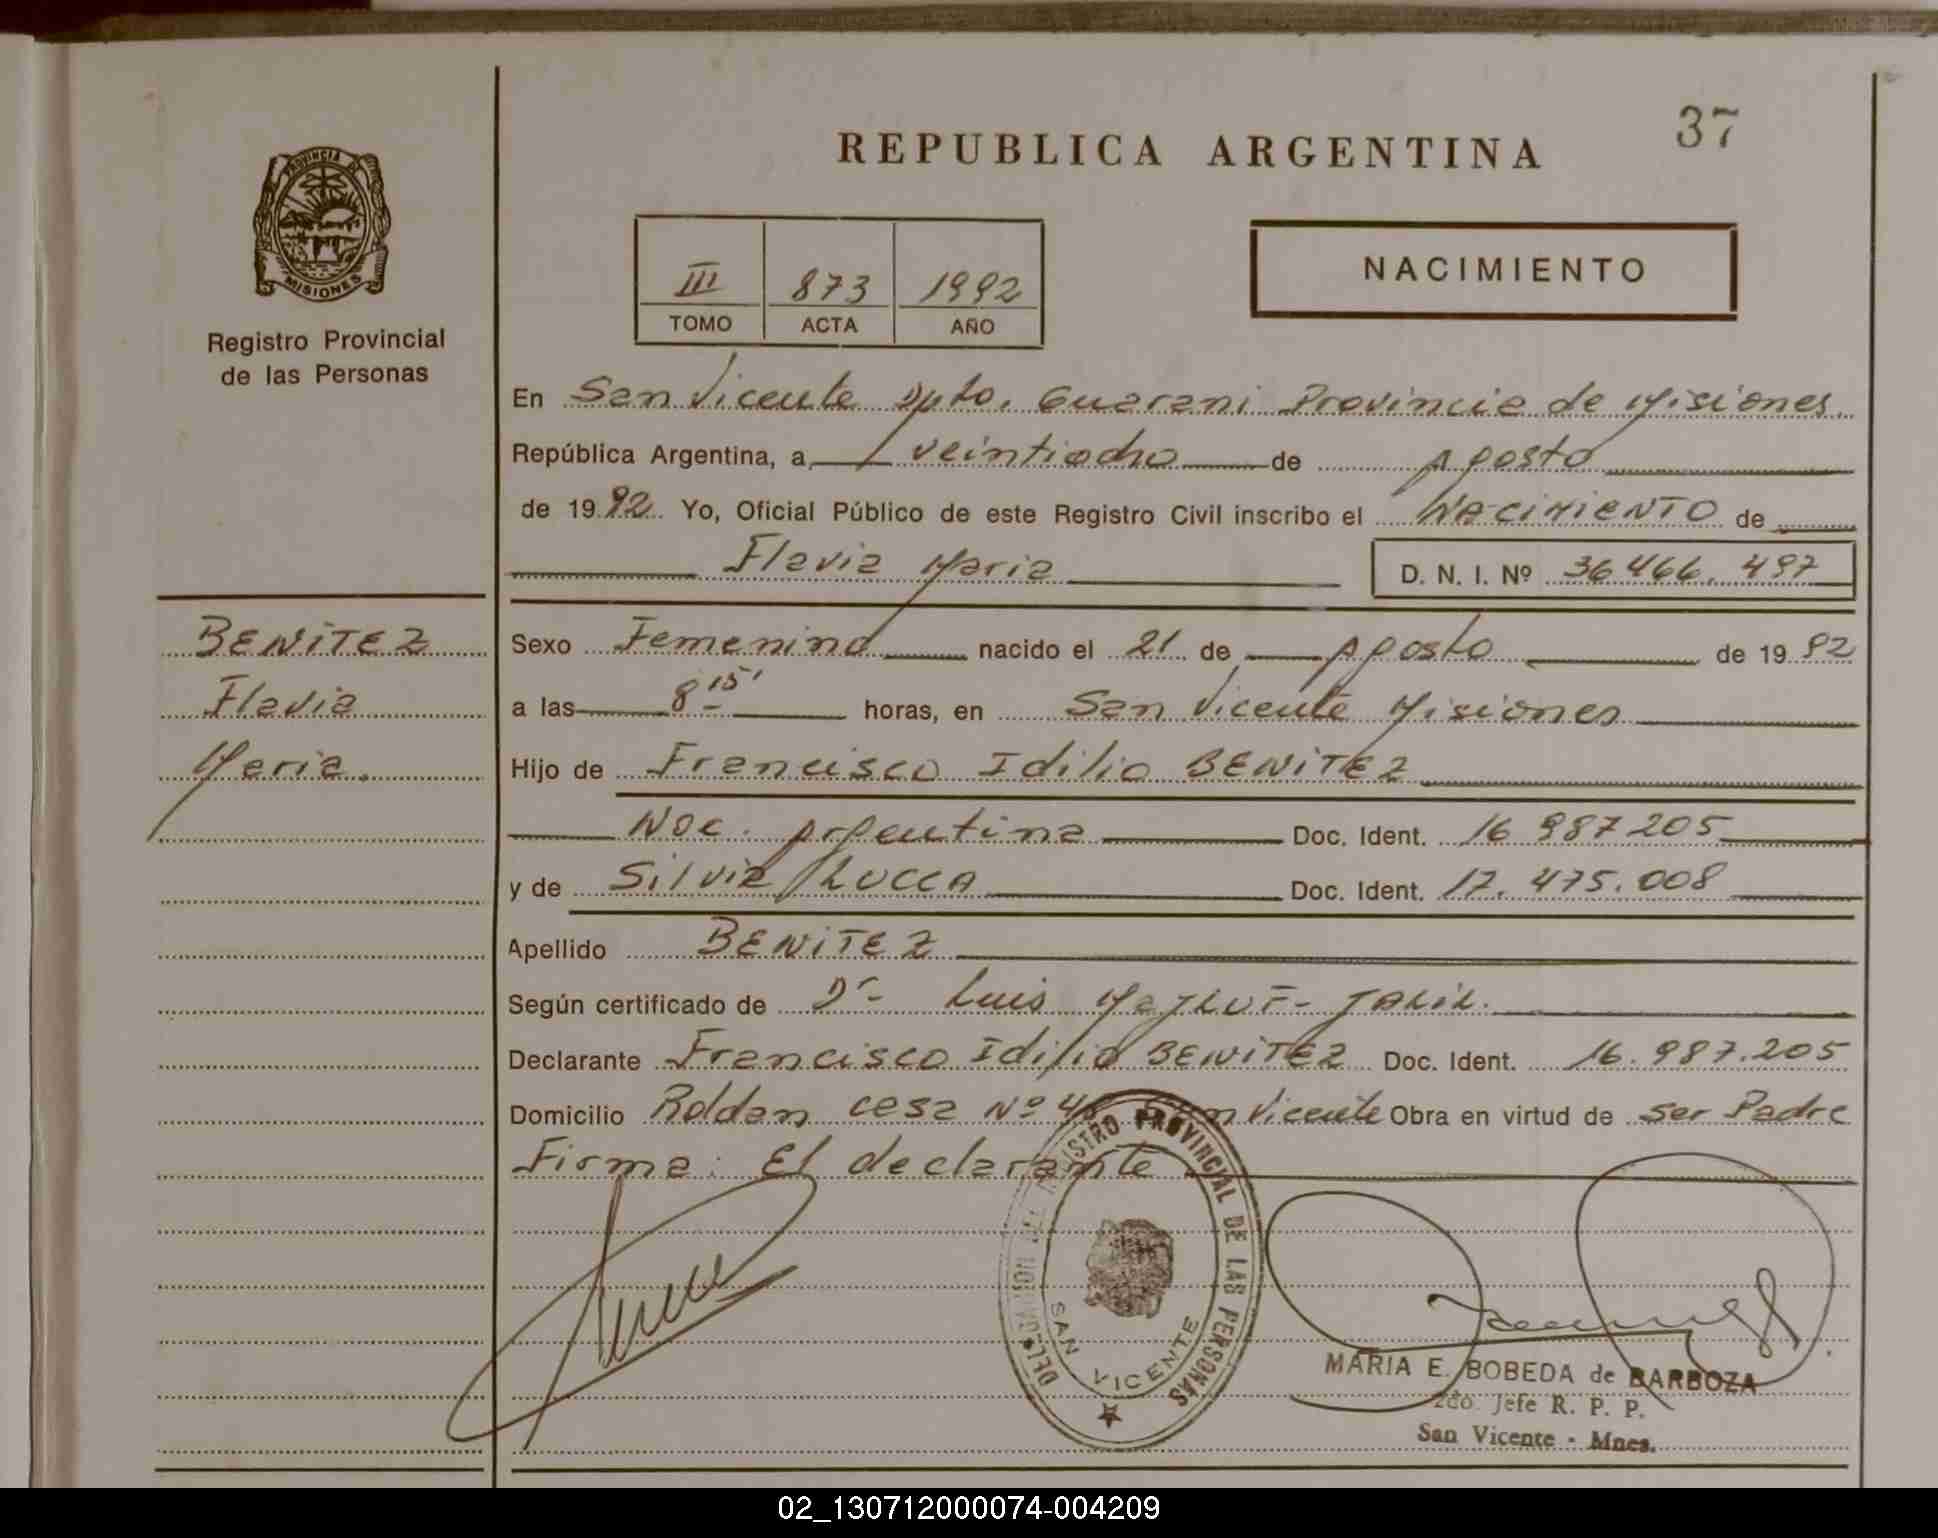 37
REPUBLICA ARGENTINA
PROVINCIA DE
MISIONES
Registro Provincial
de las Personas
III 873 1992
TOMO ACTA AÑO
NACIMIENTO
En San Vicente Dpto. Guarani Provincia de Misiones
República Argentina, a veintiocho de Agosto
de 1992 Yo, Oficial Público de este Registro Civil inscribo el NACIMIENTO de
Flavia Maria D. N. I. Nº 36 466. 497
BENITEZ
Flavia
Maria.
Sexo Femenino nacido el 21 de Agosto de 1992
a las 8 15' horas, en San Vicente Misiones
Hijo de Francisco Idilio BENITEZ
Nac. Argentina Doc. Ident. 16 987 205
y de Silvia LUCCA Doc. Ident. 17. 475. 008
Apellido BENITEZ
Según certificado de Dr Luis JALIL.
Declarante Francisco Idilio BENITEZ Doc. Ident. 16. 987. 205
Domicilio Roldan casa Nº San Vicente Obra en virtud de ser Padre
Firma: El declarante
REGISTRO PROVINCIAL DE LAS PERSONAS
SAN VICENTE
MARIA E. BOBEDA de BARBOZA
2do. Jefe R. P. P.
San Vicente - Mnes.
02_130712000074-004209